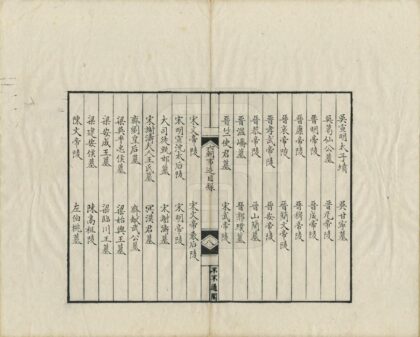 吳宣明太子墳 吳甘寧墓
吳葛仙公墓 晉元帝陵
晉明帝陵 晉成帝陵
晉康帝陵 晉穆帝陵
晉哀帝陵 晉簡文帝陵
晉孝武帝陵 晉安帝陵
晉恭帝陵 晉山簡墓
晉溫嶠墓 晉郭璞墓
晉竺使君墓 宋武帝陵
六朝事迹目錄 八
宋文帝陵 宋文帝袁后陵
宋明宣沈太后陵 宋明帝陵
大司徒 墓 宋謝濤墓
宋謝濤夫人王氏墓 漢君墓
齊劉皇后墓 齊獻武公墓
梁吳平忠侯墓 梁始興王墓
梁安成王墓 梁臨川王墓
梁建安侯墓 陳高祖陵
陳文帝陵 左伯桃墓